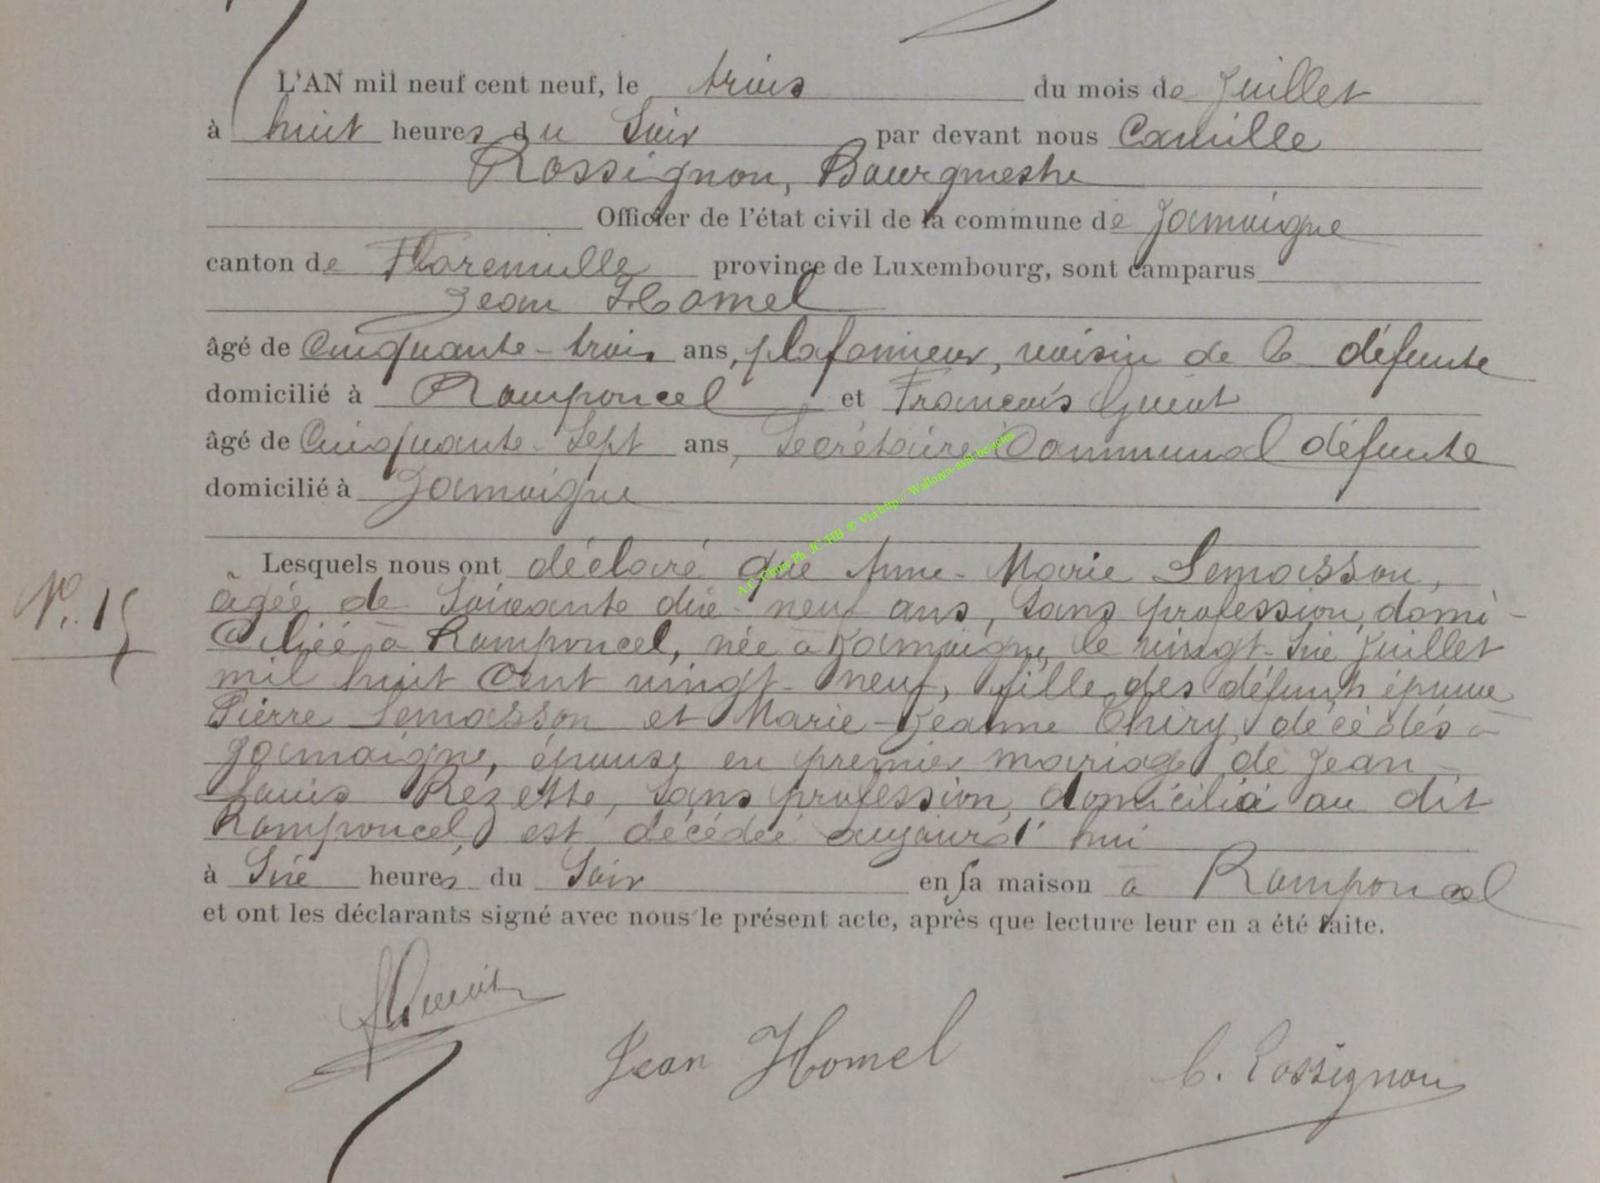 L'AN mil neuf cent neuf, le trois du mois de Juillet
à huit heures du Soir par devant nous Camille
Rossignon, Bourgmestre
Officier de l'état civil de la commune de Jamoigne
canton de Florenville province de Luxembourg, sont comparus
Jean Hamel
âgé de Cinquante-trois ans, plafonneur, voisin de la défunte
domicilié à Romponcel et François
âgé de Cinquante-Sept ans, Secrétaire Communal défunte
domicilié à Jamoigne
Lesquels nous ont déclaré que Anne-Marie Lemasson,
N°. 15
âgée de Soixante dix-neuf ans, Sans profession, domi-
Ciliée à Romponcel, née à Jamoigne, le vingt-Six Juillet
mil huit Cent vingt-neuf, fille des défunts époux
Pierre Lemasson et Marie-Jeanne Thiry, décédés à
Jamoigne, épouse en premier mariage de Jean
Louis Rézette, Sans profession, domicilié au dit
Romponcel, est décédée aujourd'hui
à Six heures du Soir en sa maison à Romponcel
et ont les déclarants signé avec nous le présent acte, après que lecture leur en a été faite.
Jean Hamel
C. Rossignon